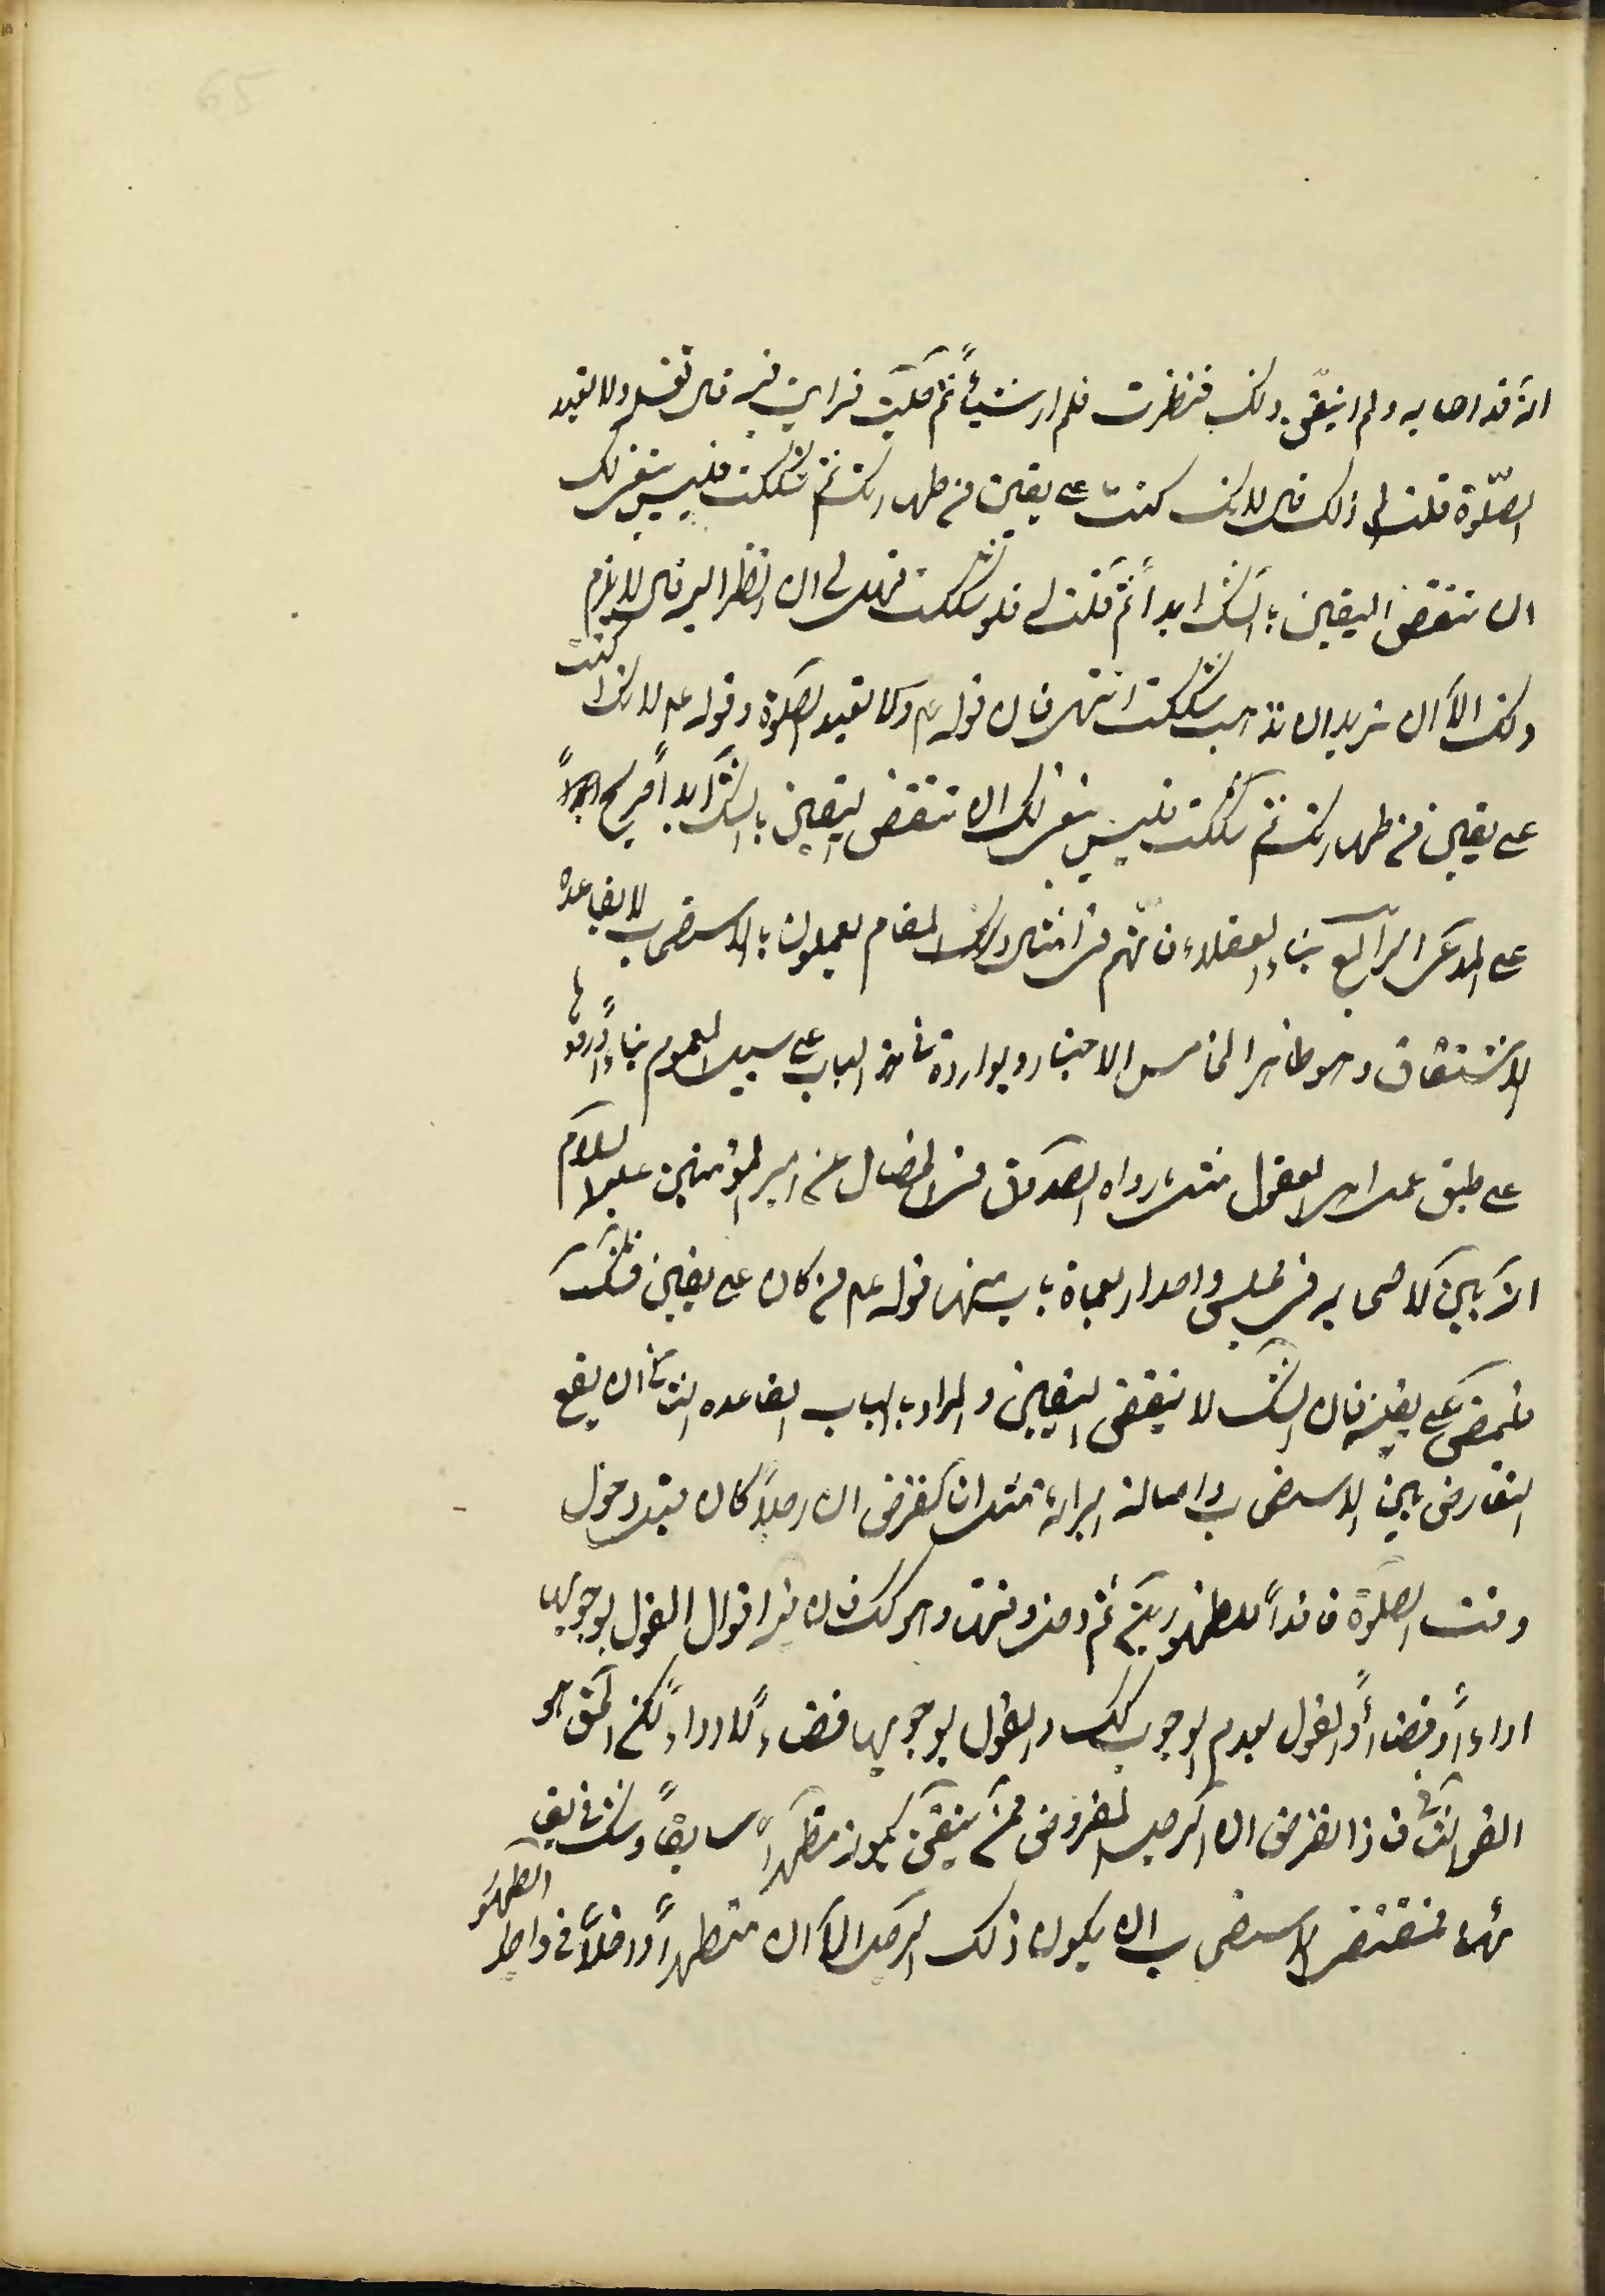 65
انه قد اصابه ولم اتيقن ذلك فنظرت فلم ار شيئاً ثم صليت فرايت فيه قال تغسله ولا تعيد
الصلوة قلت لم ذلك قال لانك كنت على يقين من طهارتك ثم شككت فليس ينبغي لك
ان تنقض اليقين بالشك ابداً ثم قلت له فلو شككت فهل لي ان انظر اليه قال لا يلزم
ذلك الا ان تريد ان تذهب شكك انتهى فان قوله ع ولا تعيد الصلوة وقوله ع لانك كنت
على يقين من طهارتك ثم شككت فليس ينبغي لك ان تنقض اليقين بالشك ابداً صريح
على المدعى الرابع بناء العقلاء فانهم في امثال ذلك المقام يعملون بالاستصحاب لا بقاعدة
الاشتغال وهو ظاهر الخامس الاخبار الواردة في هذا الباب على سبيل العموم بناءً
على طبق عمل اهل العقول مثل ما رواه الصدوق في الخصال عن امير المؤمنين عليه السلام
انه بين لاصحابه في مجلس واحد اربعماة باب منها قوله ع من كان على يقين فشك
فليمض على يقينه فان الشك لا ينقض اليقين والمراد بالباب القاعده الثانى ان يقع
التعارض بين الاستصحاب واصالة البرائة مثل ان نفرض ان رجلاً كان قبل دخول
وقت الصلوة فاقداً للطهورين ثم دخل وقتها وهو كك فان فيه اقوال القول بوجوبها
اداءً وقضاءً والقول بعدم الوجوب كك والقول بوجوبها قضاءً لا اداءً لكن الحق هو
القول الثانى فاذا نفرض ان الرجل المفروض ممن يتيقن بكونه متطهراً سابقاً وشك في
فمقتضى الاستصحاب ان يكون ذلك الرجل الآن متطهراً وداخلاً في واجد الطهور